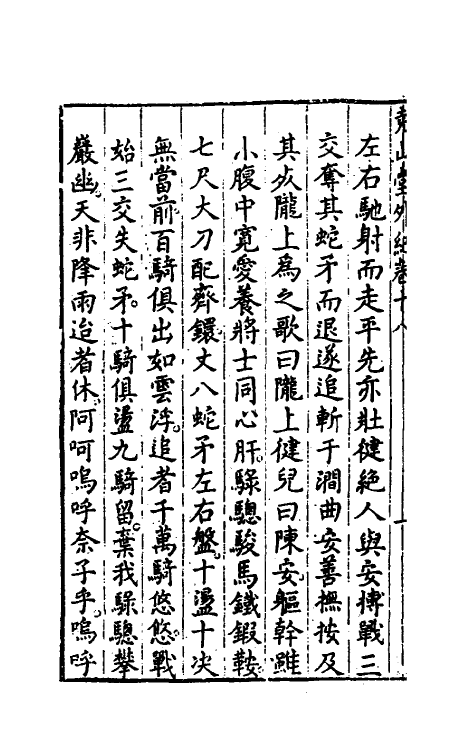 堯山堂外紀卷十八
一
左右馳射而走平先亦壯健絕人與安搏戰三
交奪其蛇矛而退遂追斬于澗曲安善撫按及
其死隴上爲之歌曰隴上健兒曰陳安。軀幹雖
小腹中寬愛養將士同心肝。騄驄駿馬鐵鍜鞍。
七尺大刀配齊鐶丈八蛇矛左右盤。十盪十决
無當前百騎俱出如雲浮。追者千萬騎悠悠。戰
始三交失蛇矛。十騎俱盪九騎留。棄我騄驄攀
巖幽。天非降雨迨者休。阿呵嗚呼奈子乎。嗚呼